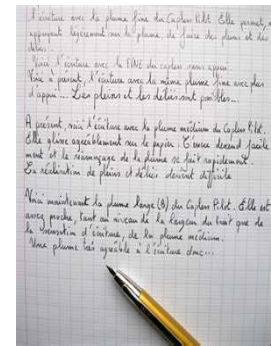 L'écriture avec la plume fine du Capless Pilot. Elle permet, en
appuyant légèrement sur la plume, de faire des pleins et des
déliés...
Voici l'écriture avec la FINE du capless sans appui
Voici à présent, l'écriture avec la même plume fine avec plus
d'appui... Les pleins et les déliés sont possibles...
A présent, voici l'écriture avec la plume médium du Capless Pilot.
Elle glisse agréablement sur le papier. L'encre descend facile
ment et le réamorçage de la plume se fait rapidement.
La réalisation de pleins et déliés devient difficile
Voici maintenant la plume large (B) du Capless Pilot. Elle est
assez proche, tant au niveau de la largeur du trait que de
la sensation d'écriture, de la plume médium.
Une plume très agréable à l'écriture donc...